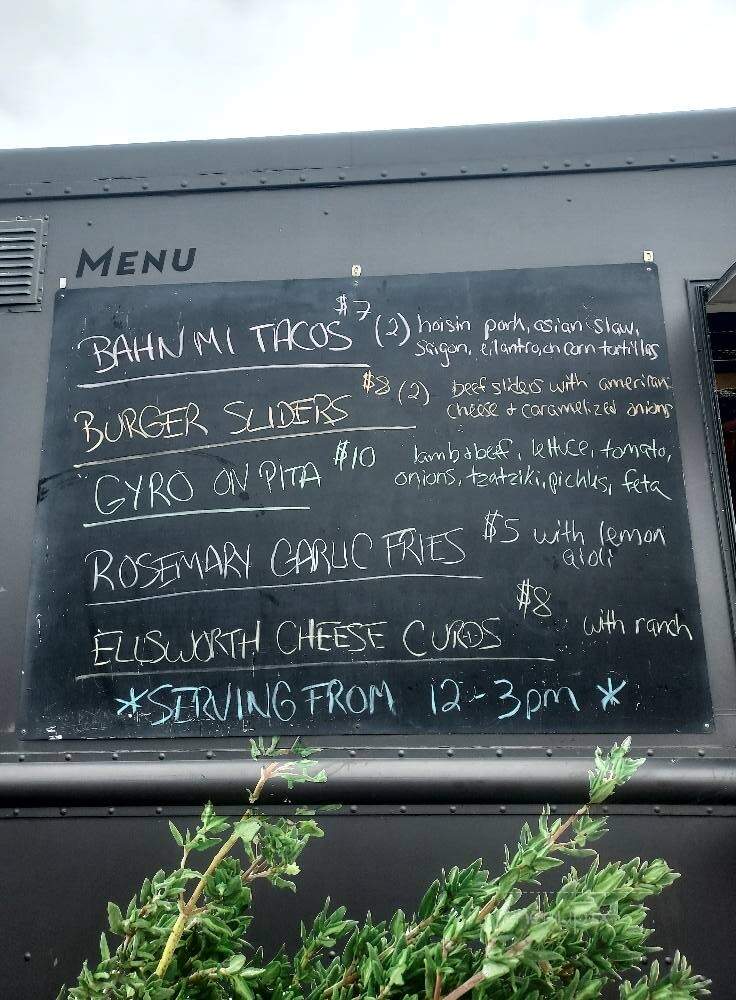 MENU
BAHN MI TACOS $7 (2) hoisin pork, asian slaw,
saigon, cilantro, on corn tortillas
BURGER SLIDERS $8 (2) beef sliders with american
cheese + caramelized onions
GYRO ON PITA $10 lamb + beef, lettuce, tomato,
onions, tzatziki, pickles, feta
ROSEMARY GARLIC FRIES $5 with lemon
aioli
ELLSWORTH CHEESE CURDS $8 with ranch
*SERVING FROM 12-3pm *